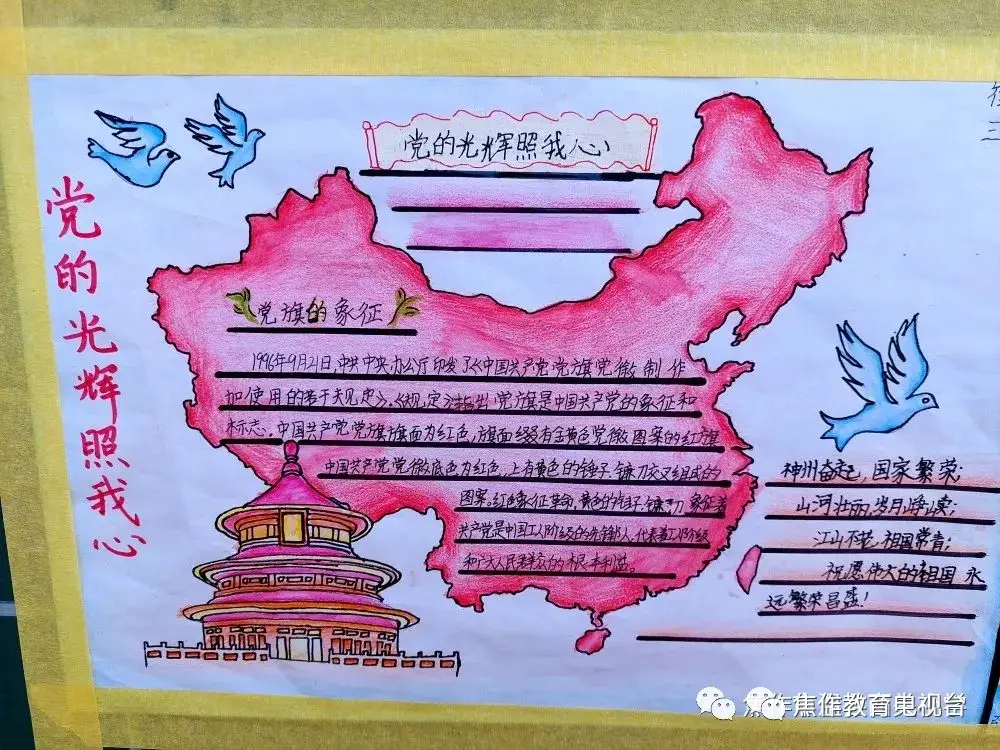 党的光辉照我心
党的光辉照我心
党旗的象征
1996年9月21日,中共中央办公厅印发了《中国共产党党旗党徽制作
和使用的若干规定》。《规定》指出党旗是中国共产党的象征和
标志。中国共产党党旗旗面为红色,旗面缀有金黄色党徽图案的红旗
中国共产党党徽底色为红色,上有黄色的锤子、镰刀交叉组成的
图案。红色象征革命,黄色的锤子、镰刀象征着
共产党是中国工人阶级的先锋队,代表着工人阶级
和广大人民群众的根本利益。
神州奋起,国家繁荣;
山河壮丽,岁月峥嵘;
江山不老,祖国常青;
祝愿伟大的祖国永
远繁荣昌盛!
三
焦作教育电视台